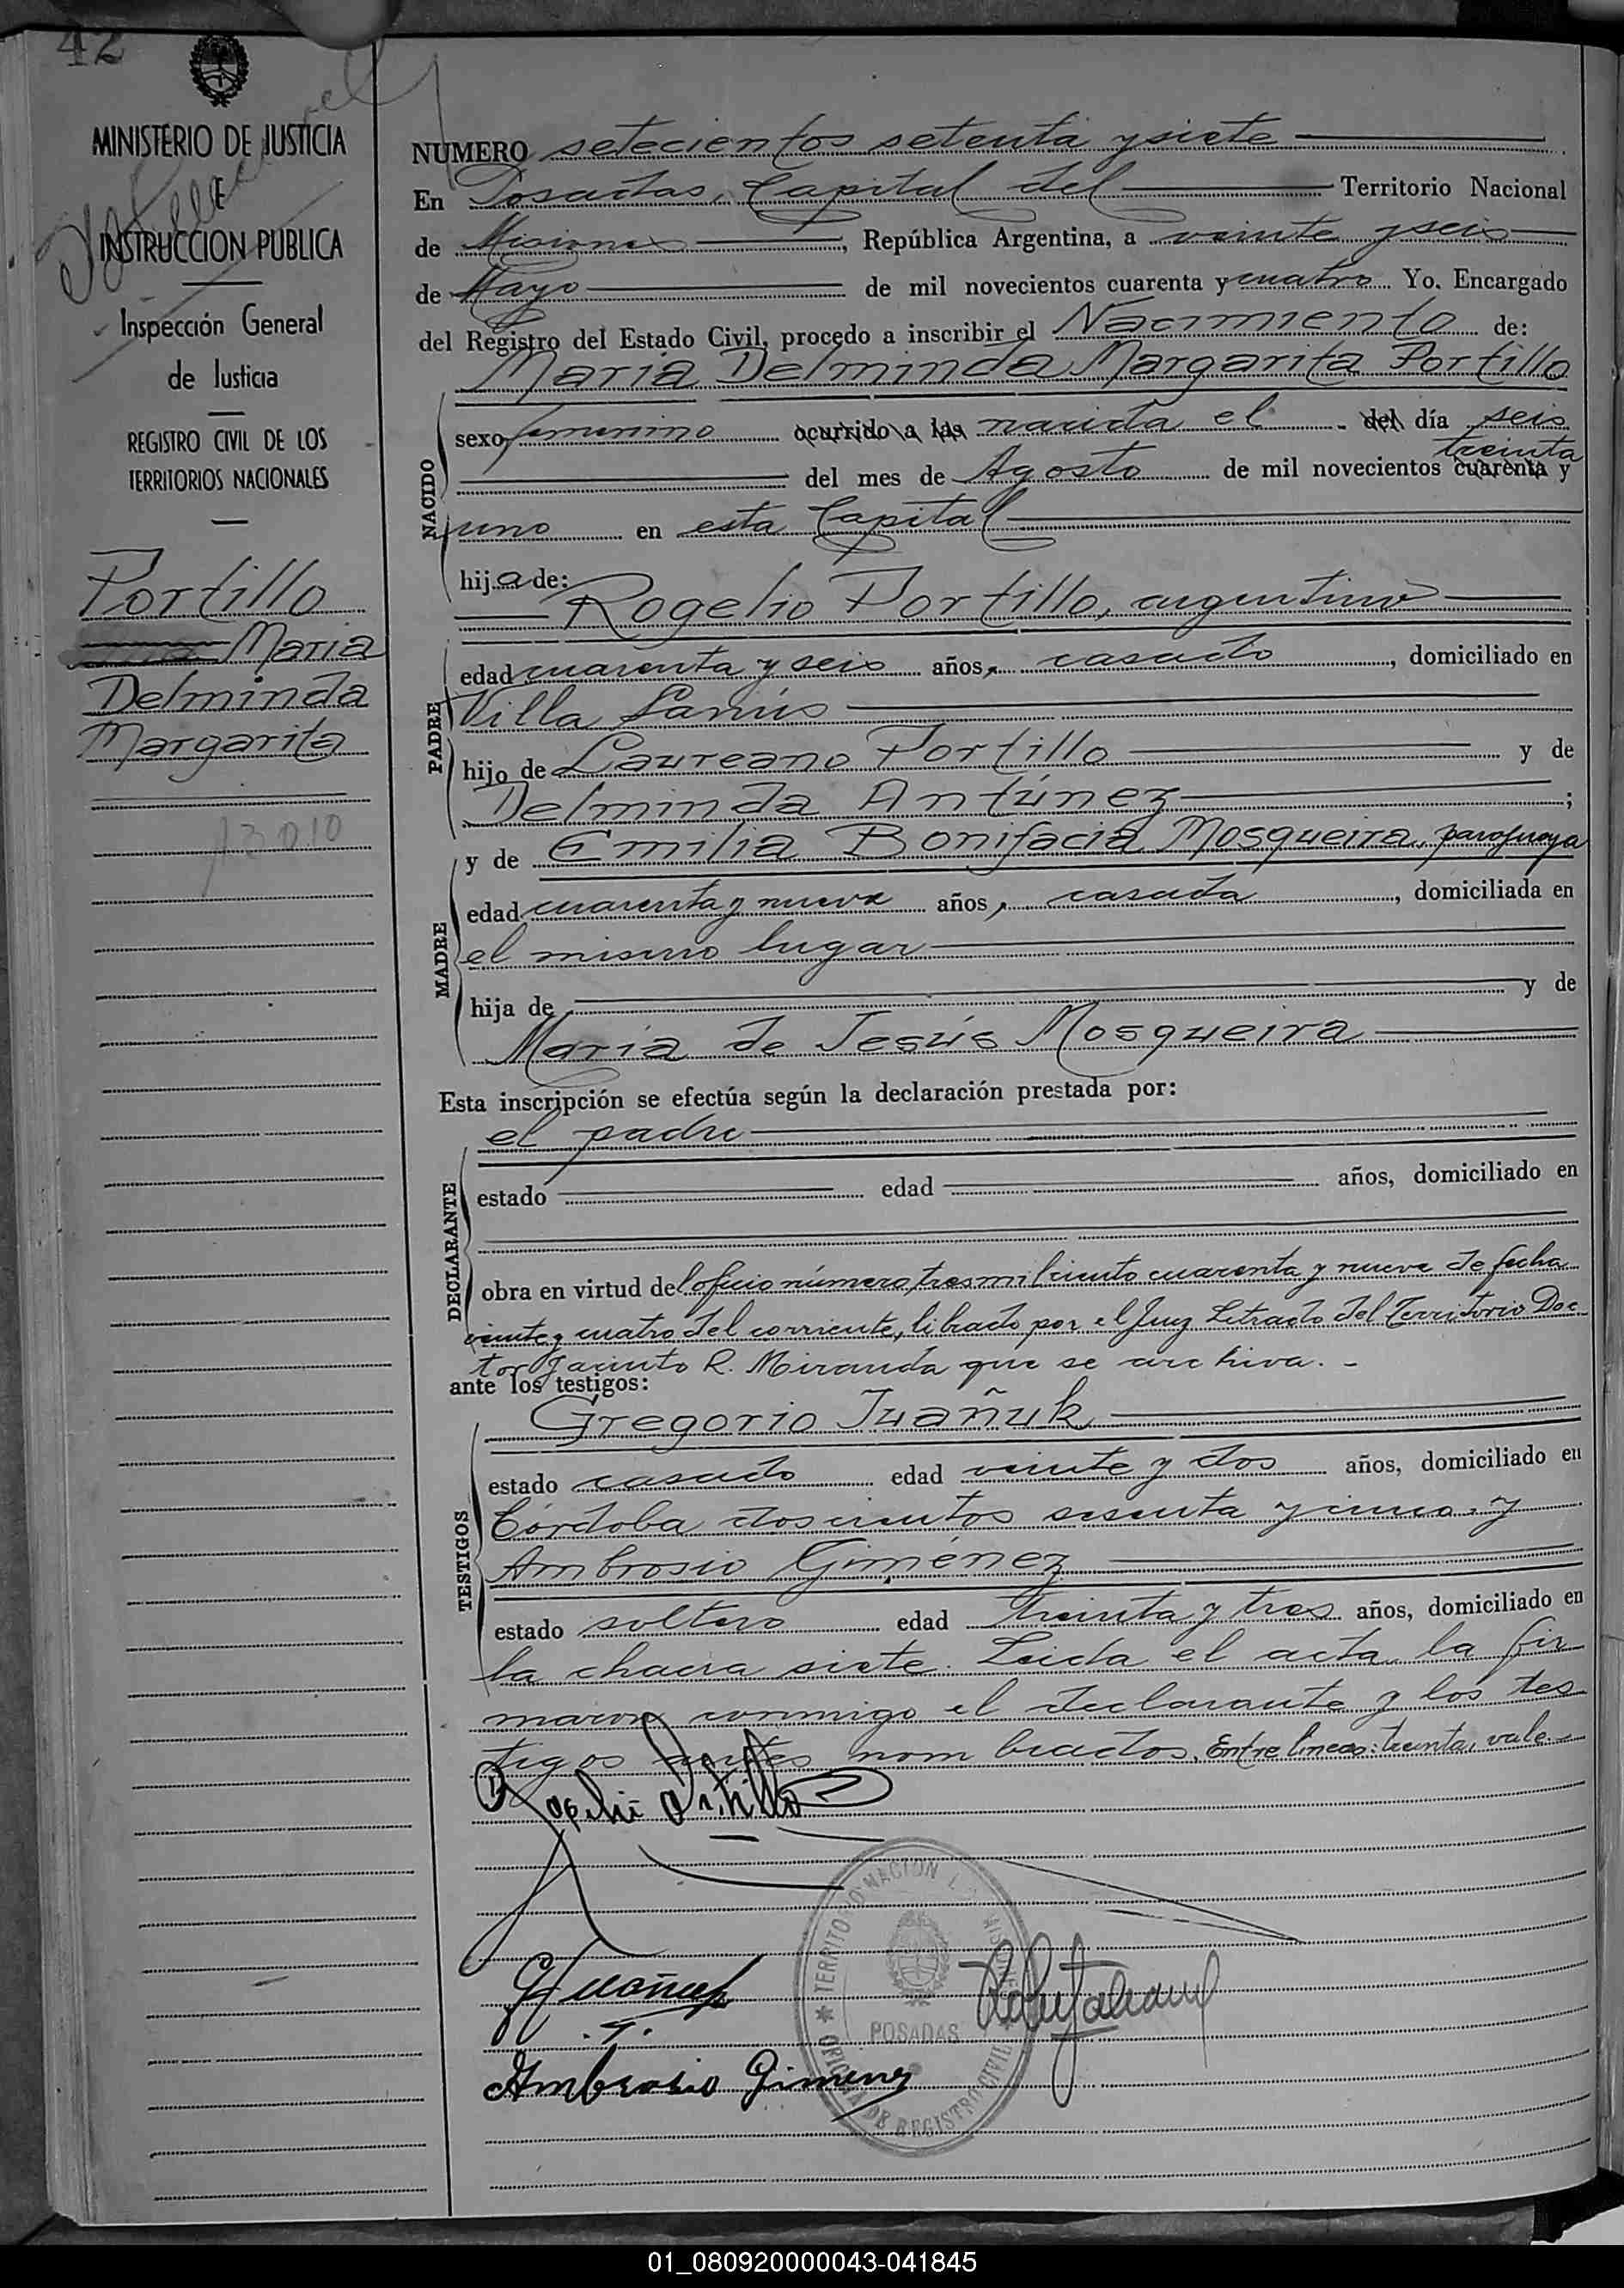 42
MINISTERIO DE JUSTICIA
E
INSTRUCCION PUBLICA
Inspección General
de Justicia
REGISTRO CIVIL DE LOS
TERRITORIOS NACIONALES
Portillo
María
Delminda
Margarita
13010
NUMERO setecientos setenta y siete
En Posadas, Capital del Territorio Nacional
de Misiones, República Argentina, a veinte y seis
de Mayo de mil novecientos cuarenta y cuatro Yo. Encargado
del Registro del Estado Civil, procedo a inscribir el Nacimiento de:
María Delminda Margarita Portillo
NACIDO
sexo femenino ocurrido a las nacida el del día seis
treinta
del mes de Agosto de mil novecientos cuarenta y
uno en esta Capital
hija de:
Rogelio Portillo, argentino
PADRE
edad cuarenta y seis años, casado, domiciliado en
Villa Lanús
hijo de Laureano Portillo y de
Delminda Antúnez;
y de Emilia Bonifacia Mosqueira, paraguaya
MADRE
edad cuarenta y nueve años, casada, domiciliada en
el mismo lugar
hija de y de
María de Jesús Mosqueira
Esta inscripción se efectúa según la declaración prestada por:
el padre
DECLARANTE
estado edad años, domiciliado en
obra en virtud del oficio número tres mil ciento cuarenta y nueve de fecha
veinte y cuatro del corriente, librado por el Juez Letrado del Territorio Doc-
tor Jacinto R. Miranda que se archiva. -
ante los testigos:
Gregorio Juañuk
TESTIGOS
estado casado edad veinte y dos años, domiciliado en
Córdoba doscientos sesenta y cinco, y
Ambrosio Giménez
estado soltero edad treinta y tres años, domiciliado en
la chacra siete. Leida el acta, la fir
maron conmigo el declarante y los tes
tigos antes nombrados. Entre líneas: treinta, vale.-
Rogelio Portillo
GJuañuk
Ambrosio Gimenez
POSADAS
OFICINA DE REGISTRO CIVIL
01_080920000043-041845